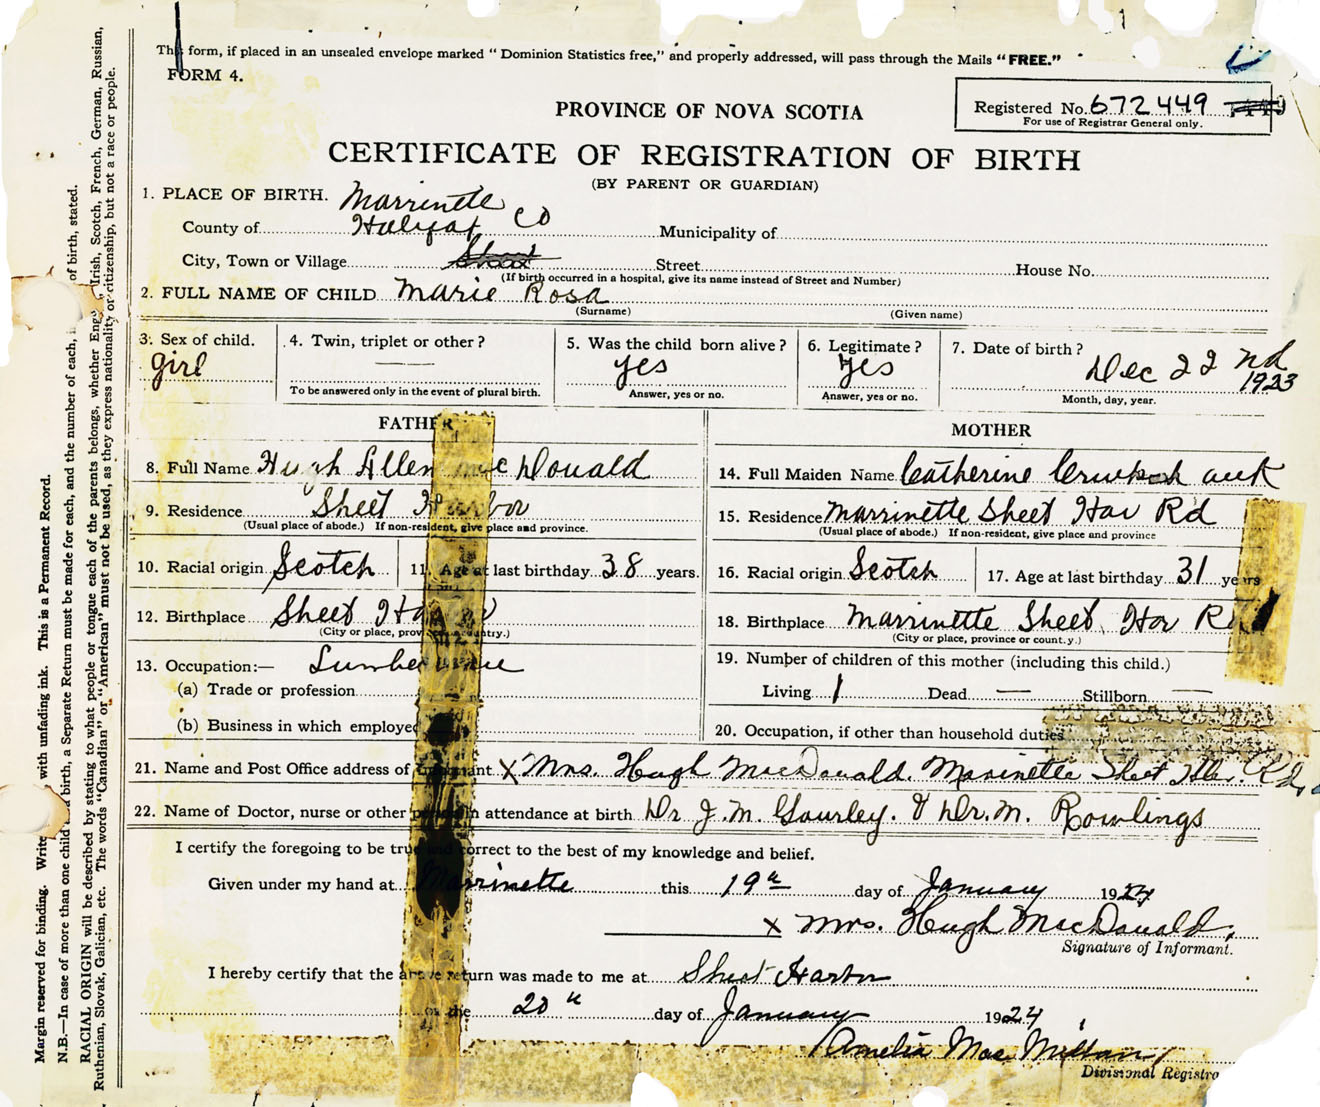 This form, if placed in an unsealed envelope marked “ Dominion Statistics free,” and properly addressed, will pass through the Mails “FREE.”
FORM 4.
Registered No. 672449
For use of Registrar General only.
PROVINCE OF NOVA SCOTIA
CERTIFICATE OF REGISTRATION OF BIRTH
(BY PARENT OR GUARDIAN)
1. PLACE OF BIRTH. Marrinette
County of Halifax Co Municipality of
City, Town or Village Street House No.
(If birth occurred in a hospital, give its name instead of Street and Number)
2. FULL NAME OF CHILD Marie Rosa
(Surname) (Given name)
3. Sex of child. 4. Twin, triplet or other ? 5. Was the child born alive ? 6. Legitimate ? 7. Date of birth ?
girl — yes Yes Dec 22nd 1923
To be answered only in the event of plural birth. Answer, yes or no. Answer, yes or no. Month, day, year.
FATHER MOTHER
8. Full Name Hugh Allen MacDonald 14. Full Maiden Name Catherine
9. Residence Sheet Harbor 15. Residence Marrinette Sheet Har Rd
(Usual place of abode.) If non-resident, give place and province. (Usual place of abode.) If non-resident, give place and province
10. Racial origin Scotch 11. Age at last birthday 38 years. 16. Racial origin Scotch 17. Age at last birthday 31 years
12. Birthplace Sheet Harbor 18. Birthplace Marrinette Sheet Har Rd
(City or place, province or country.) (City or place, province or count.y.)
13. Occupation:— Lumberman 19. Number of children of this mother (including this child.)
(a) Trade or profession Living 1 Dead — Stillborn —
(b) Business in which employed 20. Occupation, if other than household duties
21. Name and Post Office address of informant X Mrs. Hugh MacDonald. Marinette Sheet Hbr. Rd.
22. Name of Doctor, nurse or other person in attendance at birth Dr J. M. Gourley. & Dr. M. Rowlings
I certify the foregoing to be true and correct to the best of my knowledge and belief.
Given under my hand at Marrinette this 19th day of January 1924
X Mrs. Hugh MacDonald.
Signature of Informant.
I hereby certify that the above return was made to me at Sheet Harbor
on the 20th day of January 1924
Amelia Mac
Divisional Registra
Margin reserved for binding. Write with unfading ink. This is a Permanent Record.
N.B.—In case of more than one child birth, a Separate Return must be made for each, and the number of each, of birth, stated.
RACIAL ORIGIN will be described by stating to what people or tongue each of the parents belongs, whether Irish, Scotch, French, German, Russian,
Ruthenian, Slovak, Galician, etc. The words “Canadian” or “American” must not be used, as they express nationality or citizenship, but not a race or people.